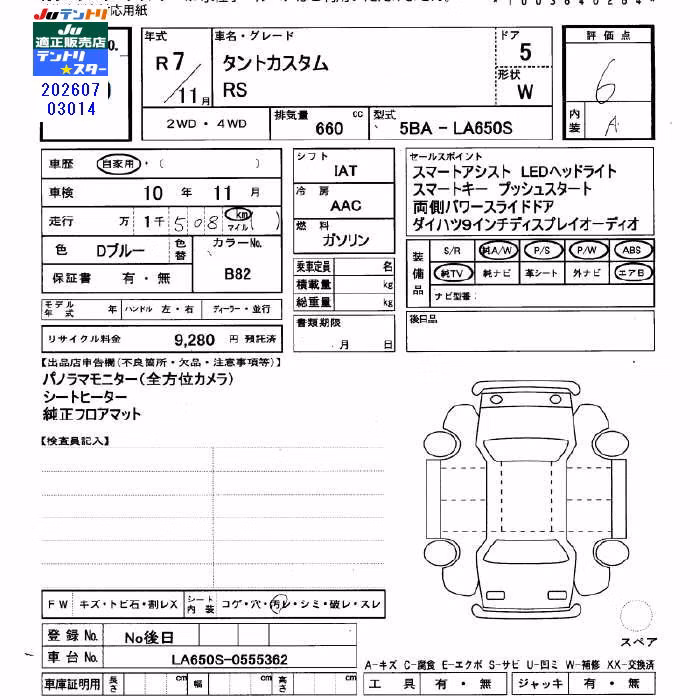 応用紙
Juテントリ
Ju
適正販売店
テントリ
スター
202607
03014
年式
R 7
11 月
車名・グレード
タントカスタム
RS
ドア
5
形状
W
評価点
6
内装
A
2WD・4WD
排気量
660 cc
型式
5BA - LA650S
車歴
自家用・( )
車検
10 年 11 月
走行
万 1千 508 km マイル ( )
色
Dブルー
色替
カラーNo.
B82
保証書
有・無
モデル年式
年
ハンドル 左・右
ディーラー・並行
リサイクル料金 9,280 円 預託済
シフト
IAT
冷房
AAC
燃料
ガソリン
乗車定員 名
積載量 kg
総重量 kg
書類期限
月 日
セールスポイント
スマートアシスト LEDヘッドライト
スマートキー プッシュスタート
両側パワースライドドア
ダイハツ9インチディスプレイオーディオ
装備品
S/R 純A/W P/S P/W ABS
純TV 純ナビ 革シート 外ナビ エアB
ナビ型番:
後日品
【出品店申告欄(不良箇所・欠品・注意事項等)】
パノラマモニター(全方位カメラ)
シートヒーター
純正フロアマット
【検査員記入】
FW キズ・トビ石・割レX
シート内装 コゲ・穴・汚レ・シミ・破レ・スレ
登録No. No後日
車台No. LA650S-0555362
車庫証明用 長さ cm 幅 cm 高さ cm
スペア
A-キズ C-腐食 E-エクボ S-サビ U-凹ミ W-補修 XX-交換済
工具 有・無 ジャッキ 有・無